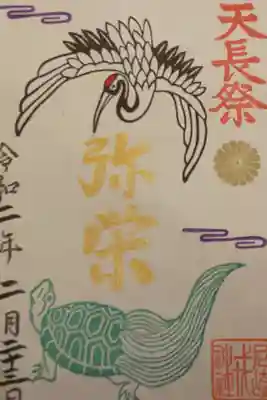 天長祭
弥栄
令和二年 二月二十三日